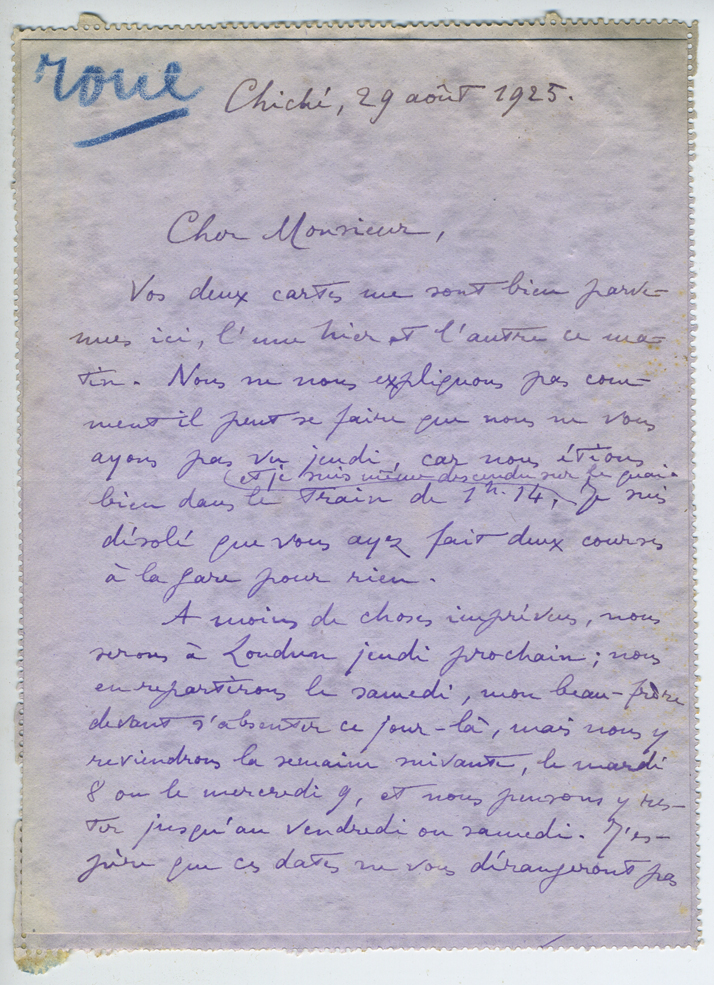 roue
Chiché, 29 août 1925.
Cher Monsieur,
Vos deux cartes me sont bien parve-
nues ici, l'une hier et l'autre ce ma-
tin. Nous ne nous expliquons pas com-
ment il peut se faire que nous ne vous
ayons pas vu jeudi, car nous étions
(et je suis même descendu sur le quai)
bien dans le train de 1h.14. Je suis
désolé que vous ayez fait deux courses
à la gare pour rien.
A moins de choses imprévues, nous
serons à Loudun jeudi prochain ; nous
en repartirons le samedi, mon beau-frère
devant s'absenter ce jour-là, mais nous y
reviendrons la semaine suivante, le mardi
8 ou le mercredi 9, et nous pensons y res-
ter jusqu'au vendredi ou samedi. J'es-
père que ces dates ne vous dérangeront pas